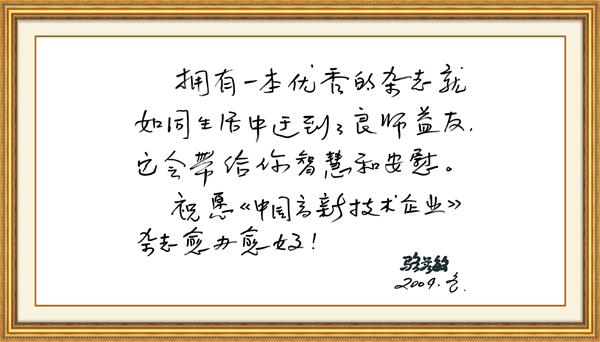 拥有一本优秀的杂志就
如同生活中迂到了良师益友,
它会带给你智慧和安慰。
祝愿《中国高新技术企业》
杂志愈办愈好!
2009.